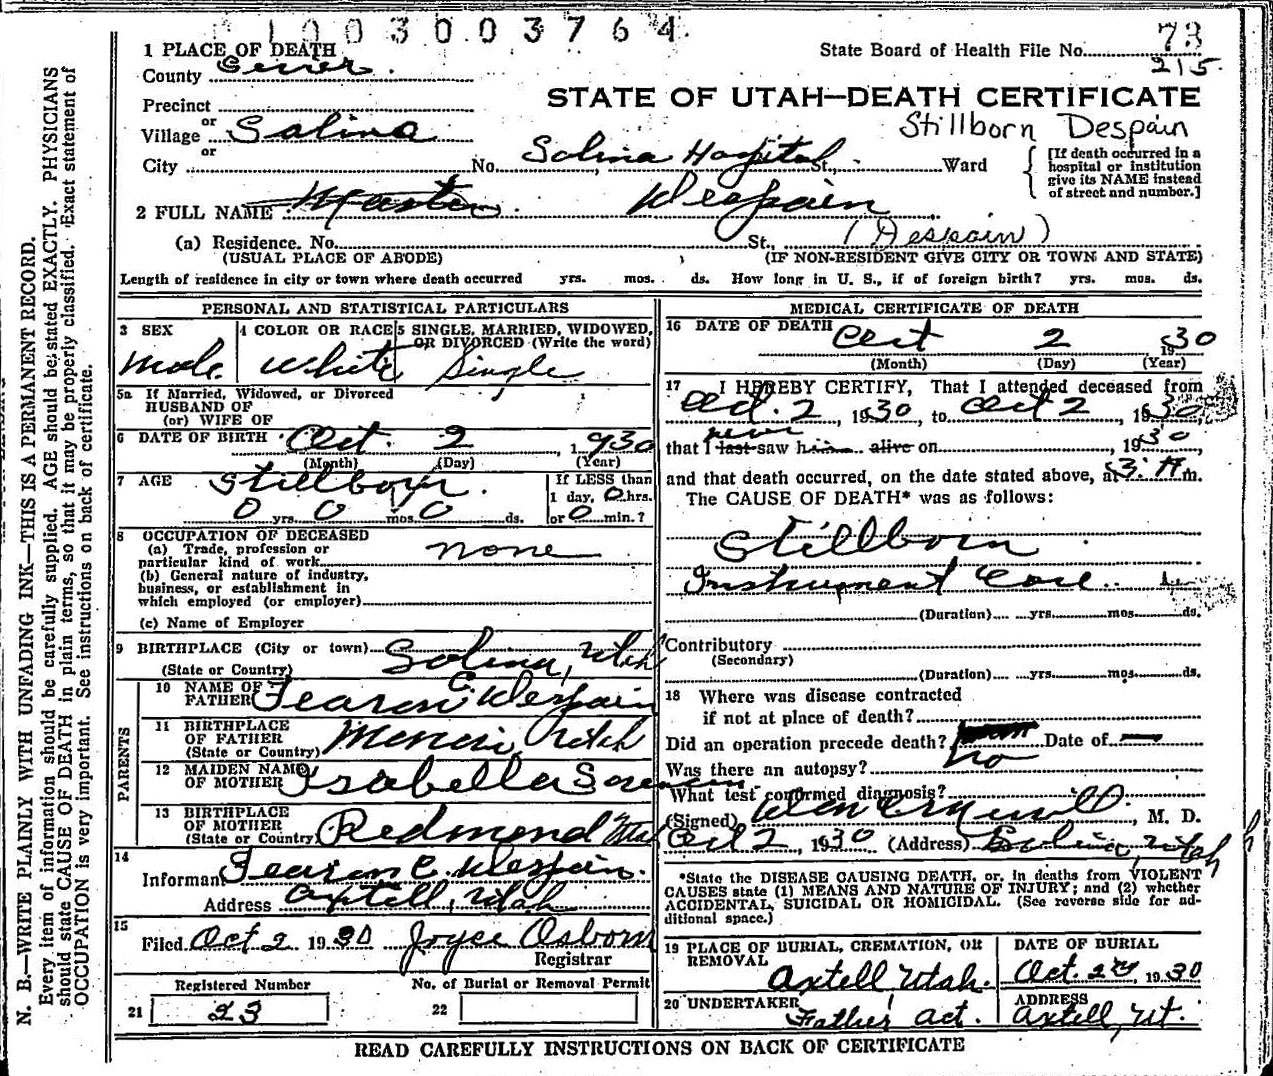 1003003764
1 PLACE OF DEATH
State Board of Health File No. 73
County Sevier
215
Precinct
STATE OF UTAH—DEATH CERTIFICATE
or
Village Salina
Stillborn Despain
or
City No. Salina Hospital St., Ward
[If death occurred in a hospital or institution give its NAME instead of street and number.]
2 FULL NAME Master Despain
(a) Residence. No. St., (Despain)
(USUAL PLACE OF ABODE) (IF NON-RESIDENT GIVE CITY OR TOWN AND STATE)
Length of residence in city or town where death occurred yrs. mos. ds. How long in U. S., if of foreign birth? yrs. mos. ds.
PERSONAL AND STATISTICAL PARTICULARS
3 SEX
Male
4 COLOR OR RACE
White
5 SINGLE, MARRIED, WIDOWED, OR DIVORCED (Write the word)
Single
5a If Married, Widowed, or Divorced
HUSBAND OF
(or) WIFE OF
6 DATE OF BIRTH Oct. 2, 1930
(Month) (Day) (Year)
7 AGE Stillborn
0 yrs. 0 mos. 0 ds.
If LESS than
1 day, 0 hrs.
or 0 min.?
8 OCCUPATION OF DECEASED
(a) Trade, profession or
particular kind of work none
(b) General nature of industry,
business, or establishment in
which employed (or employer)
(c) Name of Employer
9 BIRTHPLACE (City or town) Salina, Utah
(State or Country)
PARENTS
10 NAME OF FATHER Fearon C. Despain
11 BIRTHPLACE OF FATHER
(State or Country) Utah
12 MAIDEN NAME OF MOTHER Isabella Sorensen
13 BIRTHPLACE OF MOTHER
(State or Country) Redmond Utah
14
Informant Fearon C. Despain.
Address Axtell, Utah
15
Filed Oct 2 1930 Joyce Osborn
Registrar
Registered Number No. of Burial or Removal Permit
21 23 22
MEDICAL CERTIFICATE OF DEATH
16 DATE OF DEATH Oct 2 1930
(Month) (Day) (Year)
17 I HEREBY CERTIFY, That I attended deceased from
Oct. 2, 1930, to Oct 2, 1930,
that I last never saw him alive on, 1930
and that death occurred, on the date stated above, at 3. A m.
The CAUSE OF DEATH* was as follows:
Stillborn
Instrument Case
(Duration) yrs. mos. ds.
Contributory
(Secondary)
(Duration) yrs. mos. ds.
18 Where was disease contracted
if not at place of death?
Did an operation precede death? Date of
Was there an autopsy? no
What test confirmed diagnosis?
(Signed), M. D.
Oct 2, 1930 (Address) Salina, Utah
*State the DISEASE CAUSING DEATH, or, in deaths from VIOLENT
CAUSES state (1) MEANS AND NATURE OF INJURY; and (2) whether
ACCIDENTAL, SUICIDAL OR HOMICIDAL. (See reverse side for ad-
ditional space.)
19 PLACE OF BURIAL, CREMATION, OR
REMOVAL
Axtell Utah.
DATE OF BURIAL
Oct. 2nd, 1930
20 UNDERTAKER
Father act.
ADDRESS
Axtell, Ut.
READ CAREFULLY INSTRUCTIONS ON BACK OF CERTIFICATE
N. B.—WRITE PLAINLY WITH UNFADING INK—THIS IS A PERMANENT RECORD.
Every item of information should be carefully supplied. AGE should be stated EXACTLY. PHYSICIANS
should state CAUSE OF DEATH in plain terms, so that it may be properly classified. Exact statement of
OCCUPATION is very important. See instructions on back of certificate.